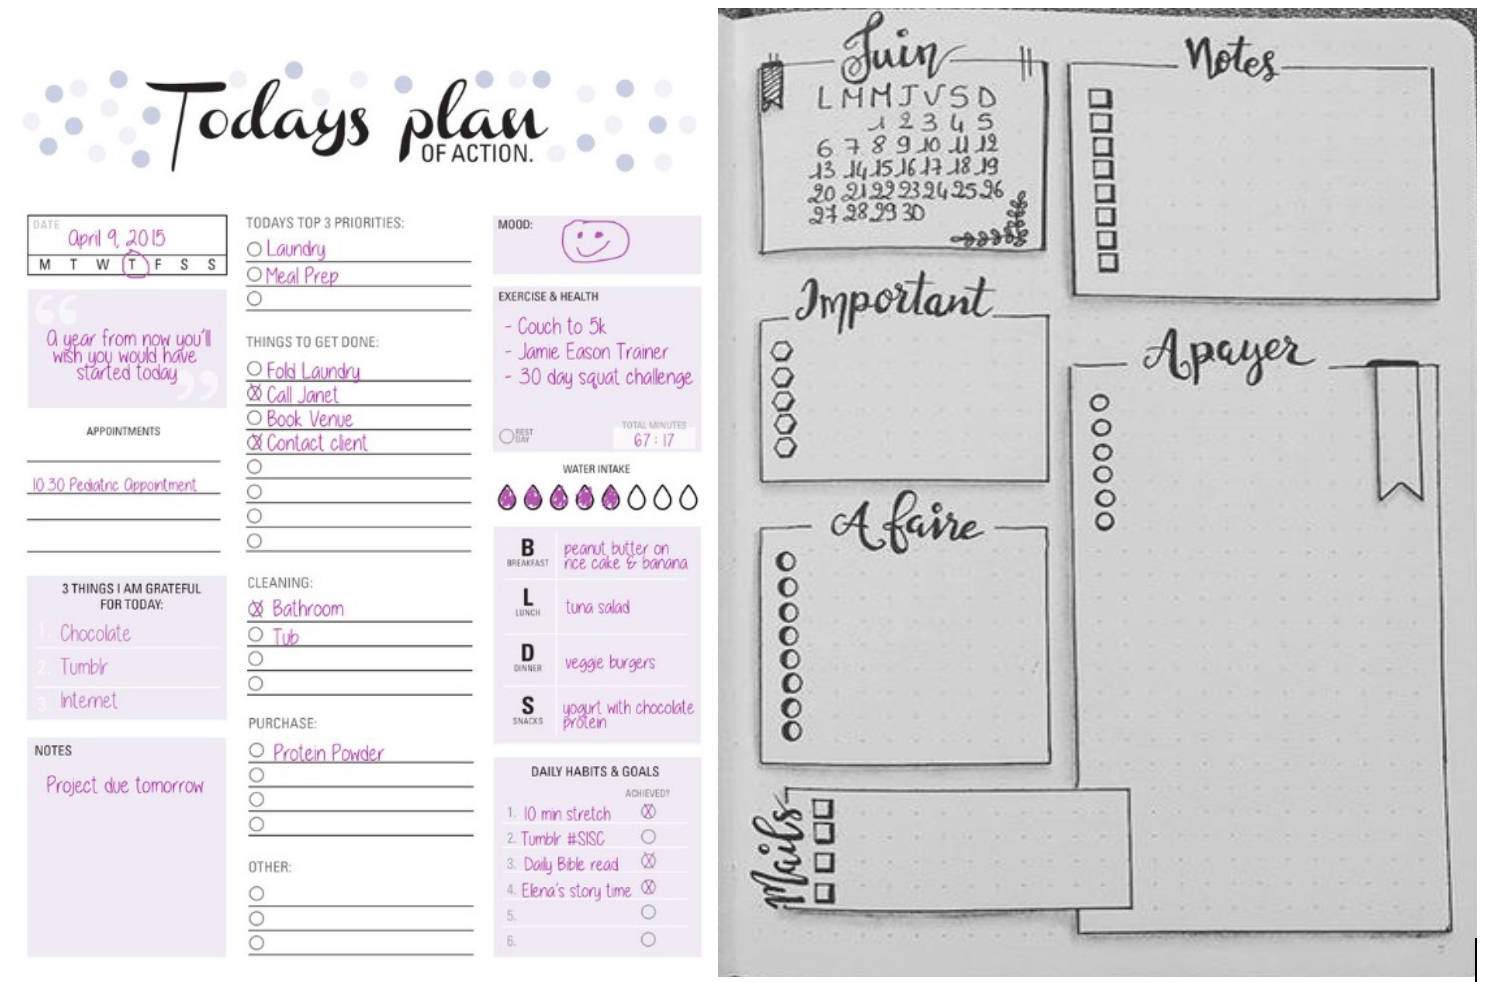 Todays plan
OF ACTION.
DATE
April 9, 2015
M T W T F S S
A year from now you'll
wish you would have
started today
APPOINTMENTS
10:30 Pediatric Appointment
3 THINGS I AM GRATEFUL
FOR TODAY:
1. Chocolate
2. Tumblr
3. Internet
NOTES
Project due tomorrow
TODAYS TOP 3 PRIORITIES:
Laundry
Meal Prep
THINGS TO GET DONE:
Fold Laundry
Call Janet
Book Venue
Contact client
CLEANING:
Bathroom
Tub
PURCHASE:
Protein Powder
OTHER:
MOOD:
EXERCISE & HEALTH
- Couch to 5k
- Jamie Eason Trainer
- 30 day squat challenge
REST
DAY
TOTAL MINUTES
67:17
WATER INTAKE
B
BREAKFAST
peanut butter on
rice cake & banana
L
LUNCH
tuna salad
D
DINNER
veggie burgers
S
SNACKS
yogurt with chocolate
protein
DAILY HABITS & GOALS
ACHIEVED?
1. 10 min stretch
2. Tumblr #SISC
3. Daily Bible read
4. Elena's story time
5.
6.
Juin
L M M J V S D
1 2 3 4 5
6 7 8 9 10 11 12
13 14 15 16 17 18 19
20 21 22 23 24 25 26
27 28 29 30
Notes
Important
A payer
A faire
Mails